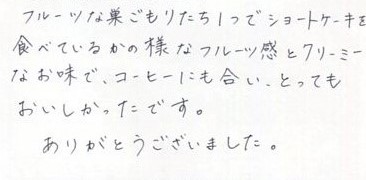 フルーツな巣ごもりたち1つでショートケーキを
食べているかの様なフルーツ感とクリーミー
なお味で、コーヒーにも合い、とっても
おいしかったです。
ありがとうございました。